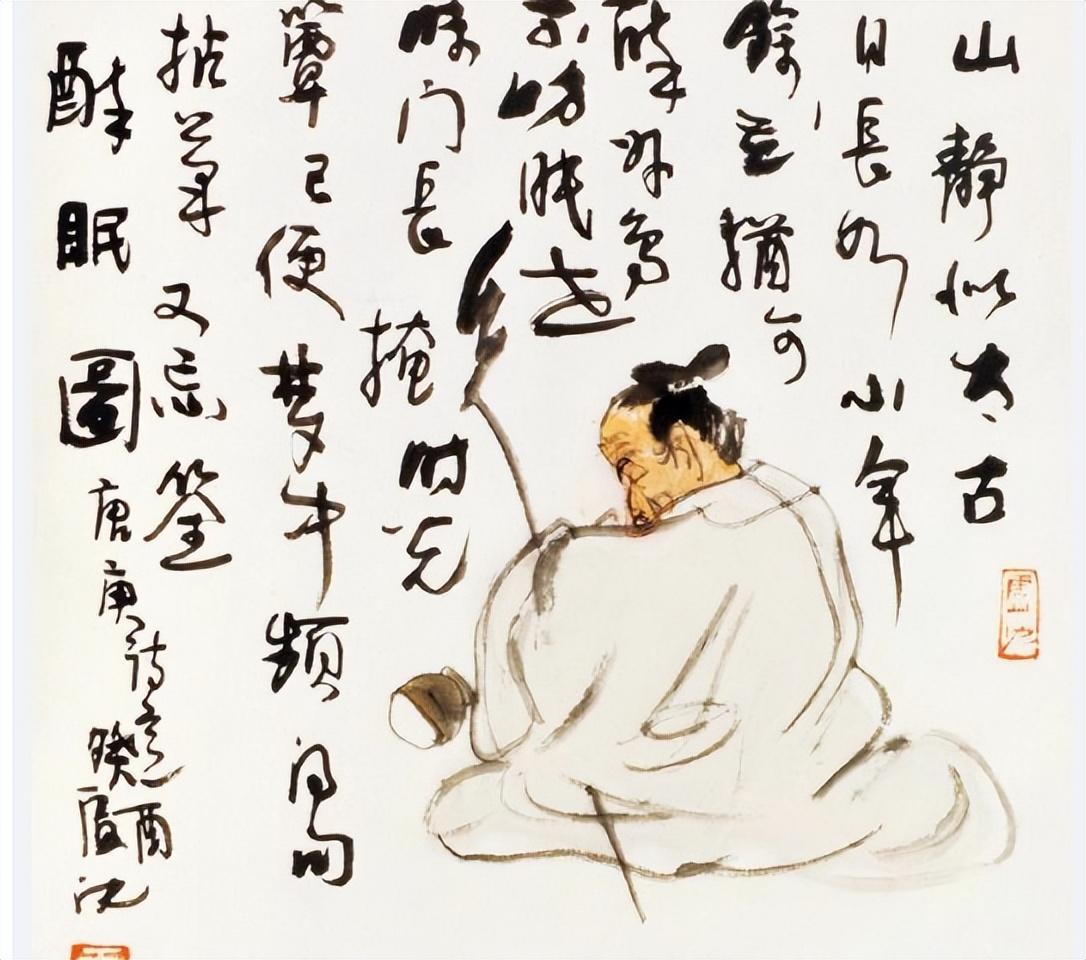 山靜似太古
日長如小年
餘花猶可
醉好鳥
不妨眠世
味门長掩时光
簟已便梦中頻得句
拈筆又忘筌
醉眠圖
唐庚詩意
癸酉
盧沈